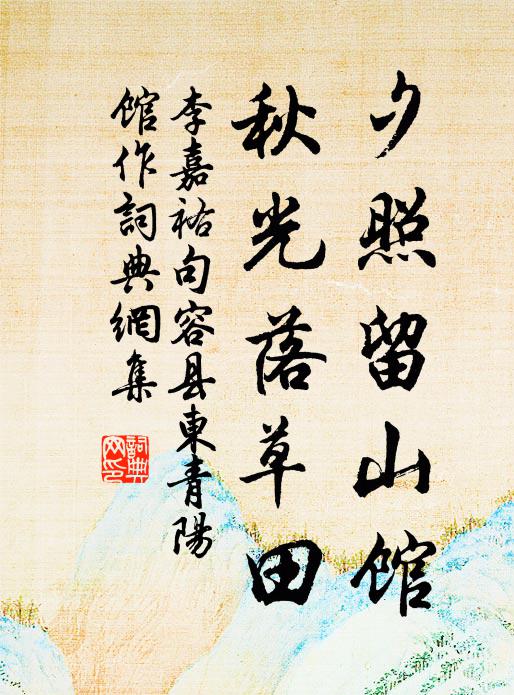 夕照留山館
秋光落草田
李嘉祐句容县東青陽
館作詞典網集
詞典
网印